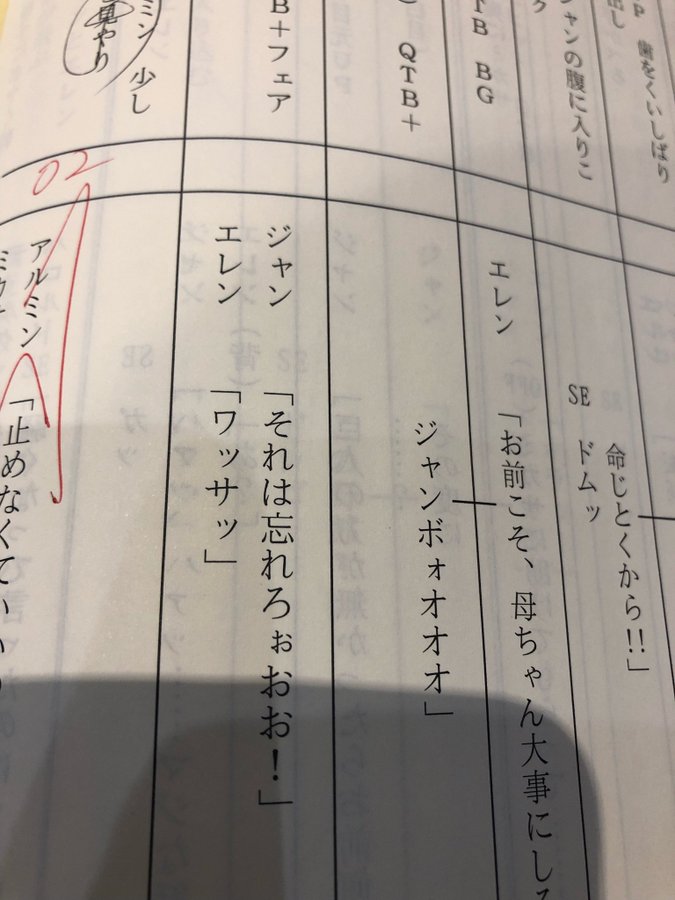 P 歯をくいしばり
出し
ジャンの腹に入りこ
ク
TB BG
QTB+
B+フェア
ミン 少し
見やり
命じとくから!!」
SE ドムッ
エレン 「お前こそ、母ちゃん大事にしろ
ジャンボォオオオ」
ジャン 「それは忘れろぉおお!」
エレン 「ワッサッ」
02
アルミン 「止めなくていい